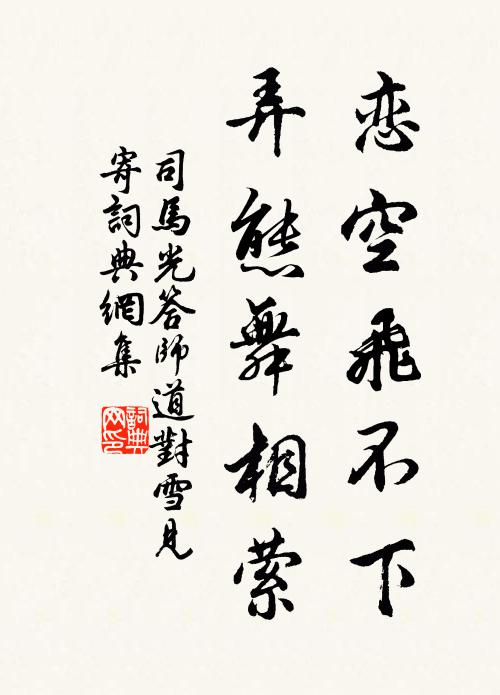 恋空飛不下
弄態舞相縈
司馬光答師道對雪見
寄詞典網集
詞典
网印